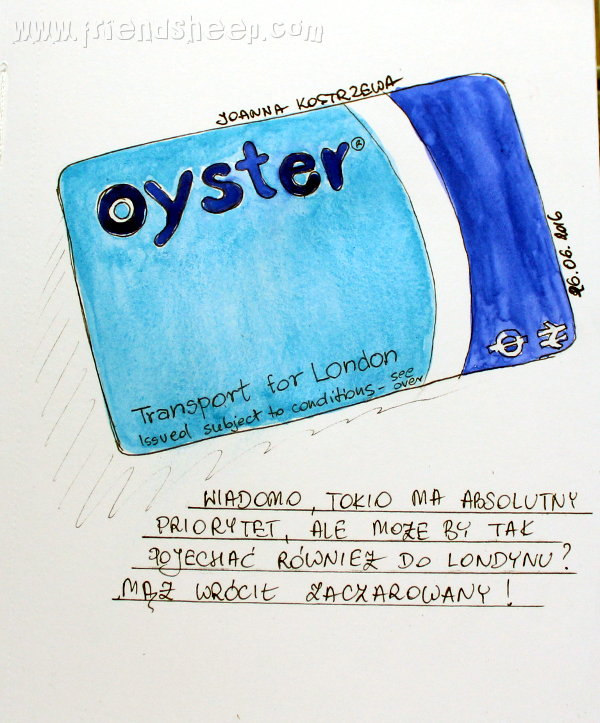 www.friendsheep.com
JOANNA KOSTRZEWA
oyster®
26.06.2016
Transport for London
Issued subject to conditions - see over
WIADOMO, TOKIO MA ABSOLUTNY
PRIORYTET, ALE MOŻE BY TAK
POJECHAĆ RÓWNIEŻ DO LONDYNU?
MĄŻ WRÓCIŁ ZACZAROWANY!